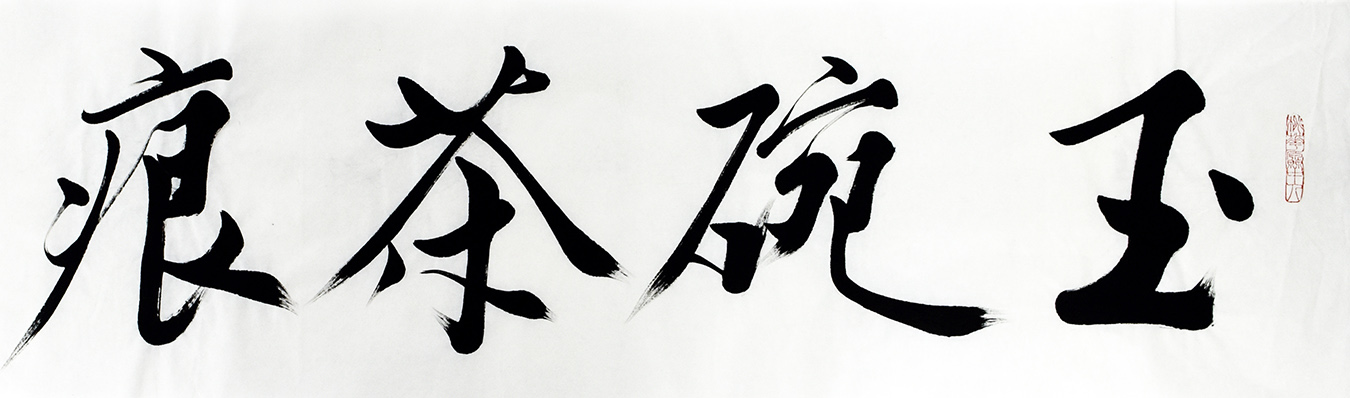 玉碗茶痕